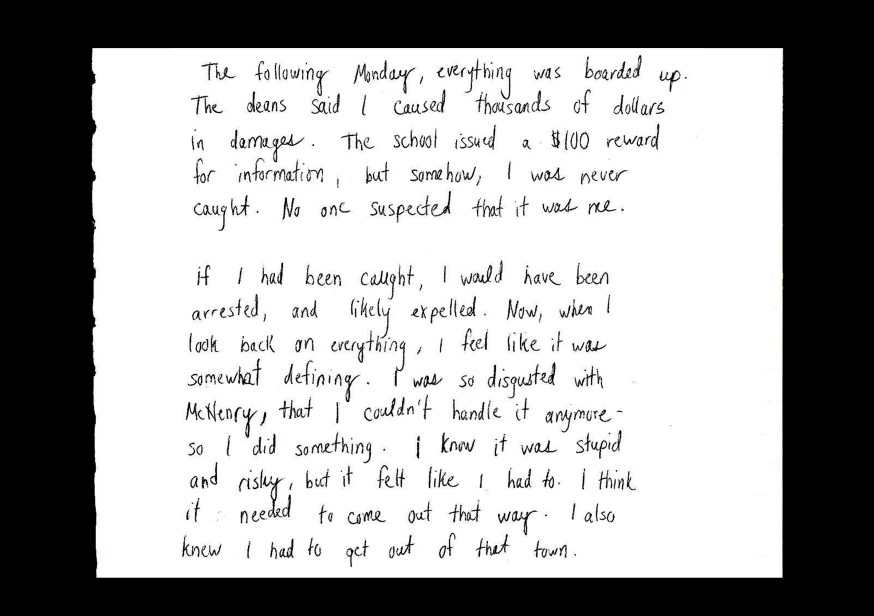 The following Monday, everything was boarded up.
The deans said I caused thousands of dollars
in damages. The school issued a $100 reward
for information, but somehow, I was never
caught. No one suspected that it was me.
if I had been caught, I would have been
arrested, and likely expelled. Now, when I
look back on everything, I feel like it was
somewhat defining. I was so disgusted with
McHenry, that I couldn't handle it anymore-
so I did something. i know it was stupid
and risky, but it felt like I had to. I think
it needed to come out that way. I also
knew I had to get out of that town.